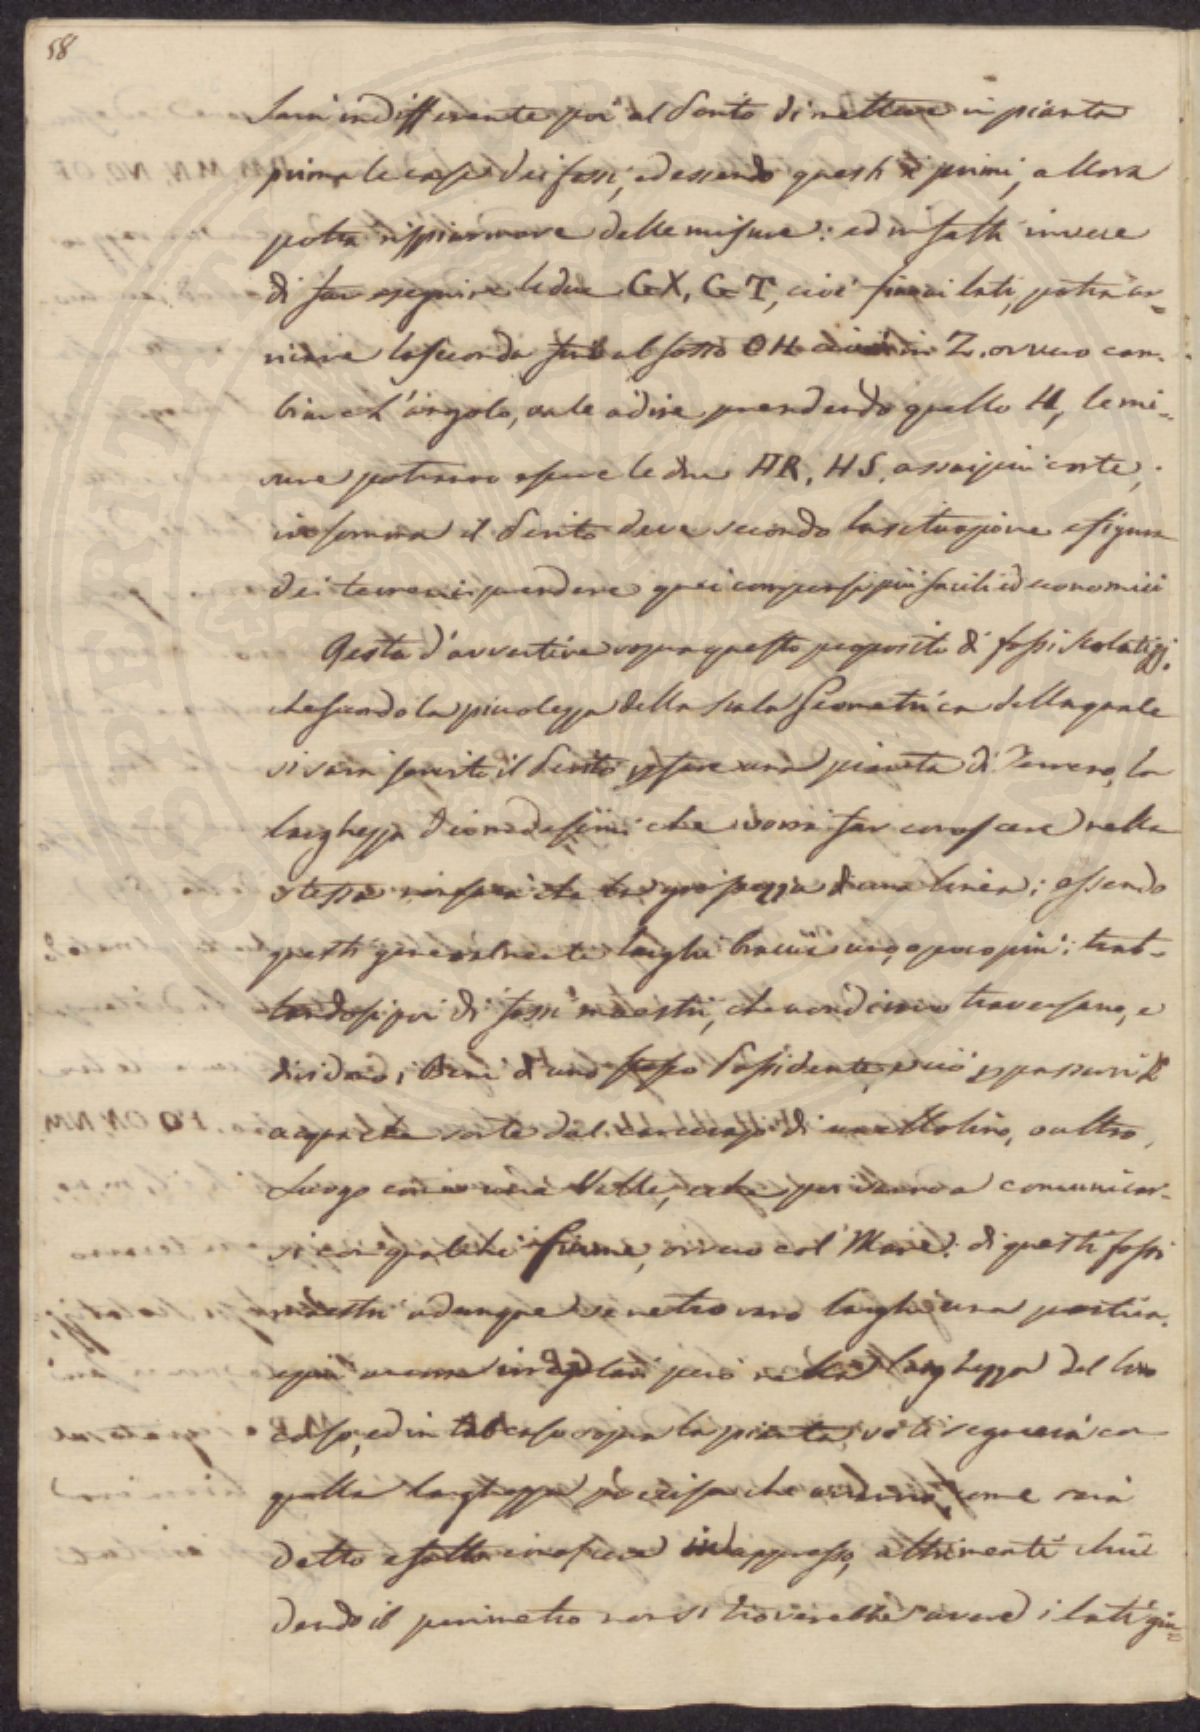 58
Sarà indifferente poi al Perito di mettere in pianta
prima le case dei fossi, ed essendo questi i primi, allora
potrà rispiarmare delle misure: ed infatti invece
di far eseguire le due GX, GT, cioè fino ai lati, potrà ar=
rivare la seconda fino al fosso OH cioè in Z. ovvero cam-
biare l'angolo, vale a dire prendendo quello H, le mi=
sure potranno essere le due HR, HS, assai più corte;
insomma il Perito deve secondo la situazione e figura
dei terreni prendere quei compensi più facili ed economici
Resta d'avvertire sopra questo proposito di fossi scolatizj,
che secondo la piccolezza della scala Geometrica della quale
si sarà servito il Perito per fare una pianta di Terreno, la
larghezza di medesimi che vorrà far conoscere nella
stessa non sarà che la grossezza di una linea; essendo
questi generalmente larghi braccia uno, o poco più: trat-
tandosi poi di fossi maestri, che traversano, e
dividano i Beni d'uno stesso Possidente, e ciò per passarvi le
acque che sorte dal di un Molino, o altro
Luogo come una Valle, e che poi vanno a comunicar-
si con qualche fiume, ovvero col Mare: di questi fossi
maestri adunque se ne trovano larghi una pertica,
e più ancora irregolari però nella larghezza del loro
corso, ed in tal caso sopra la pianta vi si segnerà con
quella larghezza precisa che averanno, come sarà
detto e fatto conoscere in appresso, altrimenti chiu
dendo il perimetro non si troverebbe avere i lati giu=